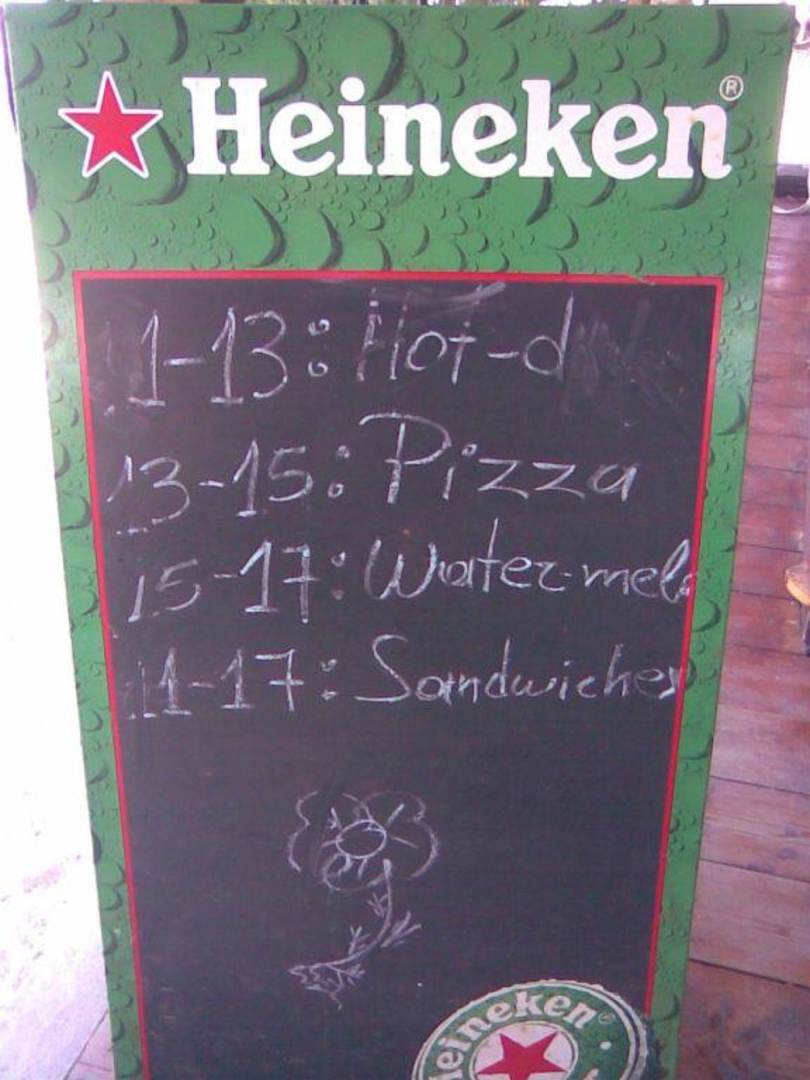 Heineken®
11-13: Hot-d
13-15: Pizza
15-17: Water-mel
11-17: Sandwiches
Heineken®